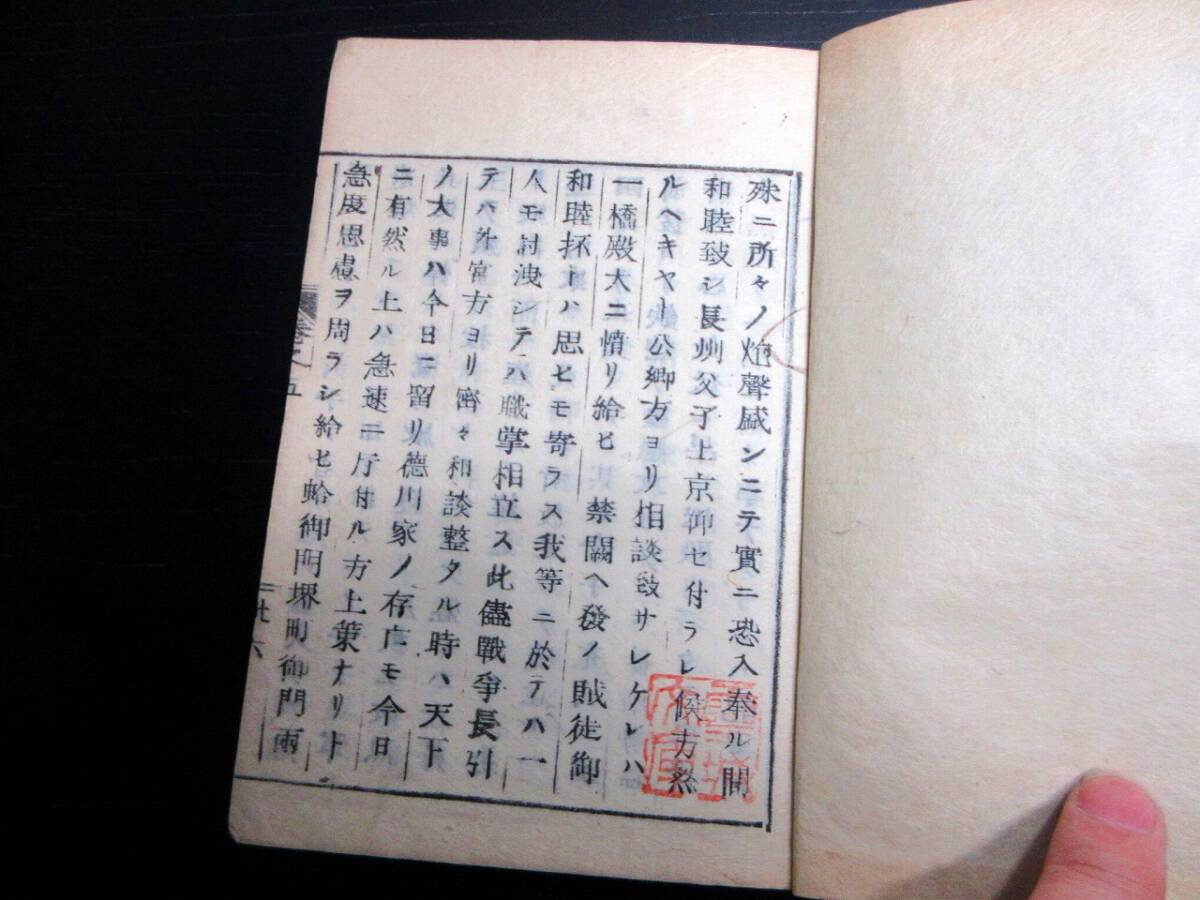 殊ニ所々ノ炮聲盛ンニテ實ニ恐入奉ル間
和睦致シ長州父子上京仰セ付ラレ候方然
ルヘキヤト公卿方ヨリ相談致サレケレハ
一橋殿大ニ憤リ給ヒ禁闕ヘ發ノ賊徒御
和睦抔トハ思ヒモ寄ラス我等ニ於テハ一
人モ討洩シテハ職掌相立ス此儘戰爭長引
テハ外宮方ヨリ密々和談整タル時ハ天下
ノ大事ハ今日ニ留リ德川家ノ存亡モ今日
ニ有然ル上ハ急速ニ片付ル方上策ナリト
急度思慮ヲ周ラシ給ヒ蛤御門堺町御門兩
卷之五
廿六